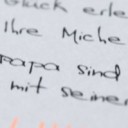 Glück erle
Ihre Miche
Papa sind
mit seiner